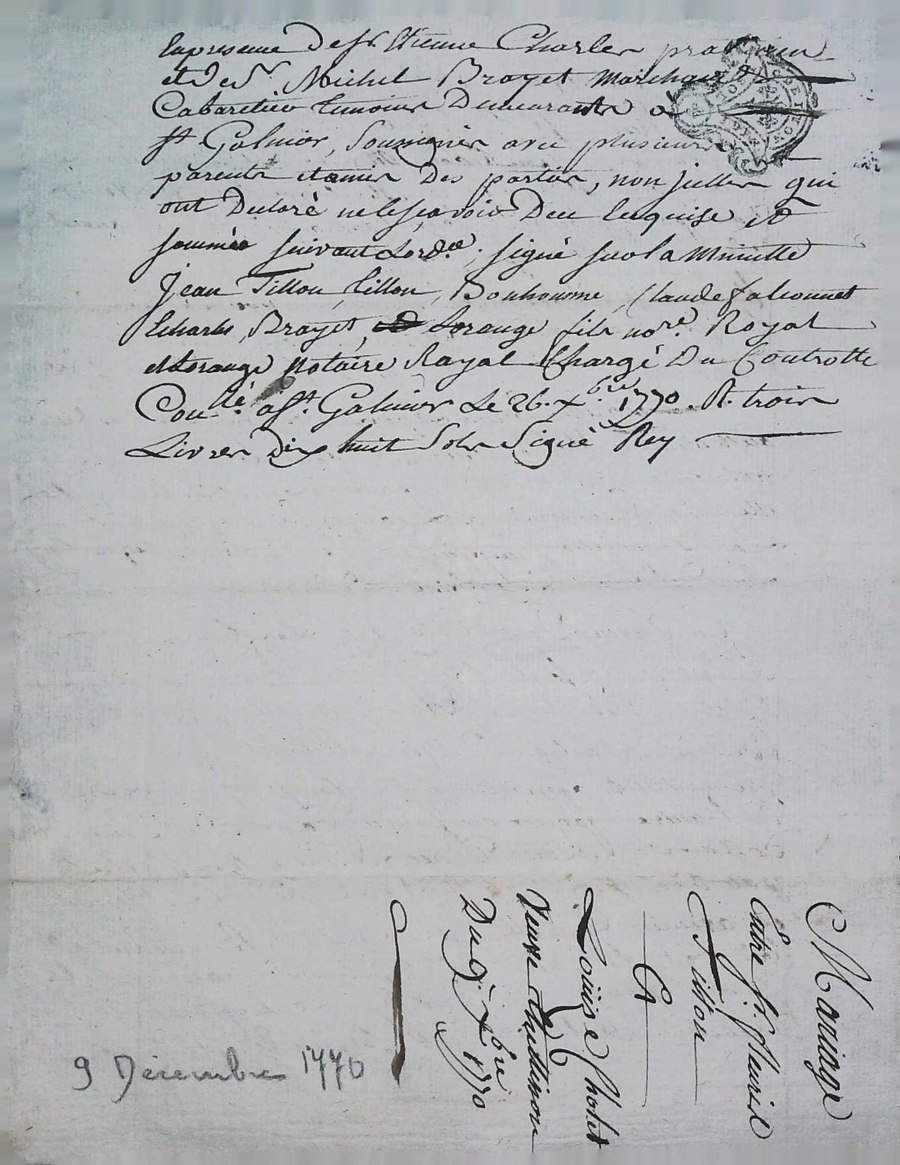 En presence De sr. Etienne Charles praticien
et De Sr. Michel Brayet Marchand
Cabaretier temoins Demeurants a
st. Galmier, Soussignés avec plusieurs
parents et amis Des parties, non Jelles qui
ont Declaré ne le sçavoir De ce Enquise et
sommée suivant Lordce. signé sur la Minutte
Jean Tillon, tillon, Bonhomme, Claude falconnet
Echarles, Brayet, Lorange fils nore. Royal
et Lorange Notaire Royal Chargé Du Controlle
Conlé. a st. Galmier Le 26. xbre 1770. R. trois
Livres Dix huit Sols Signé Rey
Mariage
Entre sr. fleurie
Tillon
Et
Loüise
Veuve
Du 9 xbre 1770
9 Décembre 1770